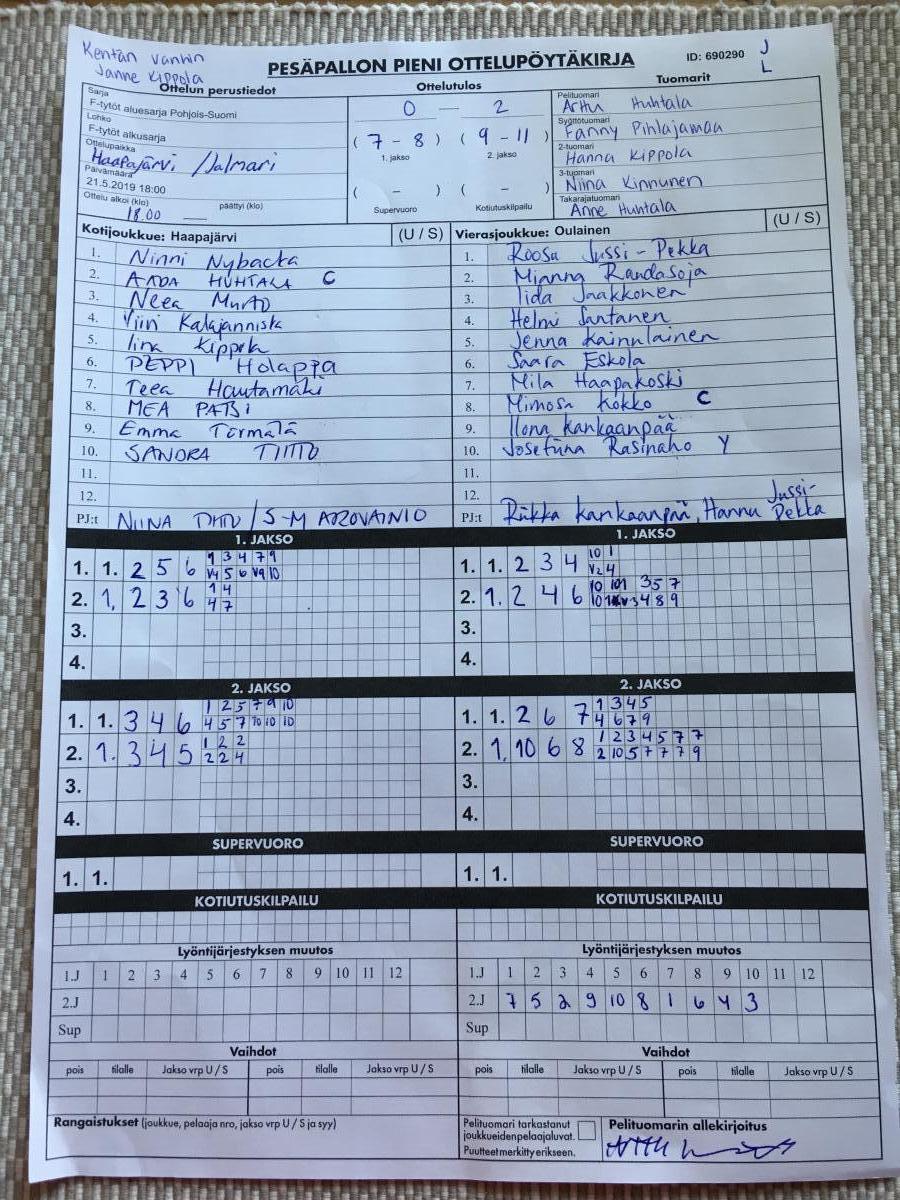 Kentän vanhin
Janne Kippola
PESÄPALLON PIENI OTTELUPÖYTÄKIRJA
ID: 690290
J
L
Ottelun perustiedot
Ottelutulos
Tuomarit
Sarja
F-tytöt aluesarja Pohjois-Suomi
Lohko
F-tytöt alkusarja
Ottelupaikka
Haapajärvi /Jalmari
Päivämäärä
21.5.2019 18:00
Ottelu alkoi (klo) päättyi (klo)
18.00
0 — 2
( 7 - 8 ) ( 9 - 11 )
1. jakso 2. jakso
( - ) ( - )
Supervuoro Kotiutuskilpailu
Pelituomari
Arttu Huhtala
Syöttötuomari
Fanny Pihlajamaa
2-tuomari
Hanna Kippola
3-tuomari
Niina Kinnunen
Takarajatuomari
Anne Huhtala
Kotijoukkue: Haapajärvi (U / S)
1. Ninni Nybacka
2. AADA HUHTALA C
3. Neea
4. Viivi
5. Iina Kippola
6. PEPPI Holappa
7. Teea Hautamäki
8. MEA PATSI
9. Emma Törmälä
10. SANDRA
11.
12.
PJ:t NIINA / S-M
Vierasjoukkue: Oulainen (U / S)
1. Roosa Jussi-Pekka
2. Mianna Randasoja
3. Iida Jaakkonen
4. Helmi Santanen
5. Jenna Kainulainen
6. Saara Eskola
7. Mila Haapakoski
8. Mimosa Kokko C
9. Ilona Kankaanpää
10. Josefiina Rasinaho Y
11.
12.
PJ:t Riikka Kankaanpää, Hannu Jussi-Pekka
1. JAKSO
1. 1. 2 5 6 1 3 4 7 9
V4 5 6 V9 10
2. 1. 2 3 6 1 4
4 7
3.
4.
1. JAKSO
1. 1. 2 3 4 10 1
V2 4
2. 1. 2 4 6 10 10 1 3 5 7
10 V3 4 8 9
3.
4.
2. JAKSO
1. 1. 3 4 6 1 2 5 7 9 10
4 5 7 10 10 10
2. 1. 3 4 5 1 2 2
2 2 4
3.
4.
2. JAKSO
1. 1. 2 6 7 1 3 4 5
4 6 7 9
2. 1. 10 6 8 1 2 3 4 5 7 7
2 10 5 7 7 7 9
3.
4.
SUPERVUORO
1. 1.
SUPERVUORO
1. 1.
KOTIUTUSKILPAILU
KOTIUTUSKILPAILU
Lyöntijärjestyksen muutos
1.J 1 2 3 4 5 6 7 8 9 10 11 12
2.J
Sup
Lyöntijärjestyksen muutos
1.J 1 2 3 4 5 6 7 8 9 10 11 12
2.J 7 5 2 9 10 8 1 6 4 3
Sup
Vaihdot
pois tilalle Jakso vrp U / S pois tilalle Jakso vrp U / S
Vaihdot
pois tilalle Jakso vrp U / S pois tilalle Jakso vrp U / S
Rangaistukset (joukkue, pelaaja nro, jakso vrp U / S ja syy)
Pelituomari tarkastanut
joukkueidenpelaajaluvat.
Puutteet merkitty erikseen.
Pelituomarin allekirjoitus